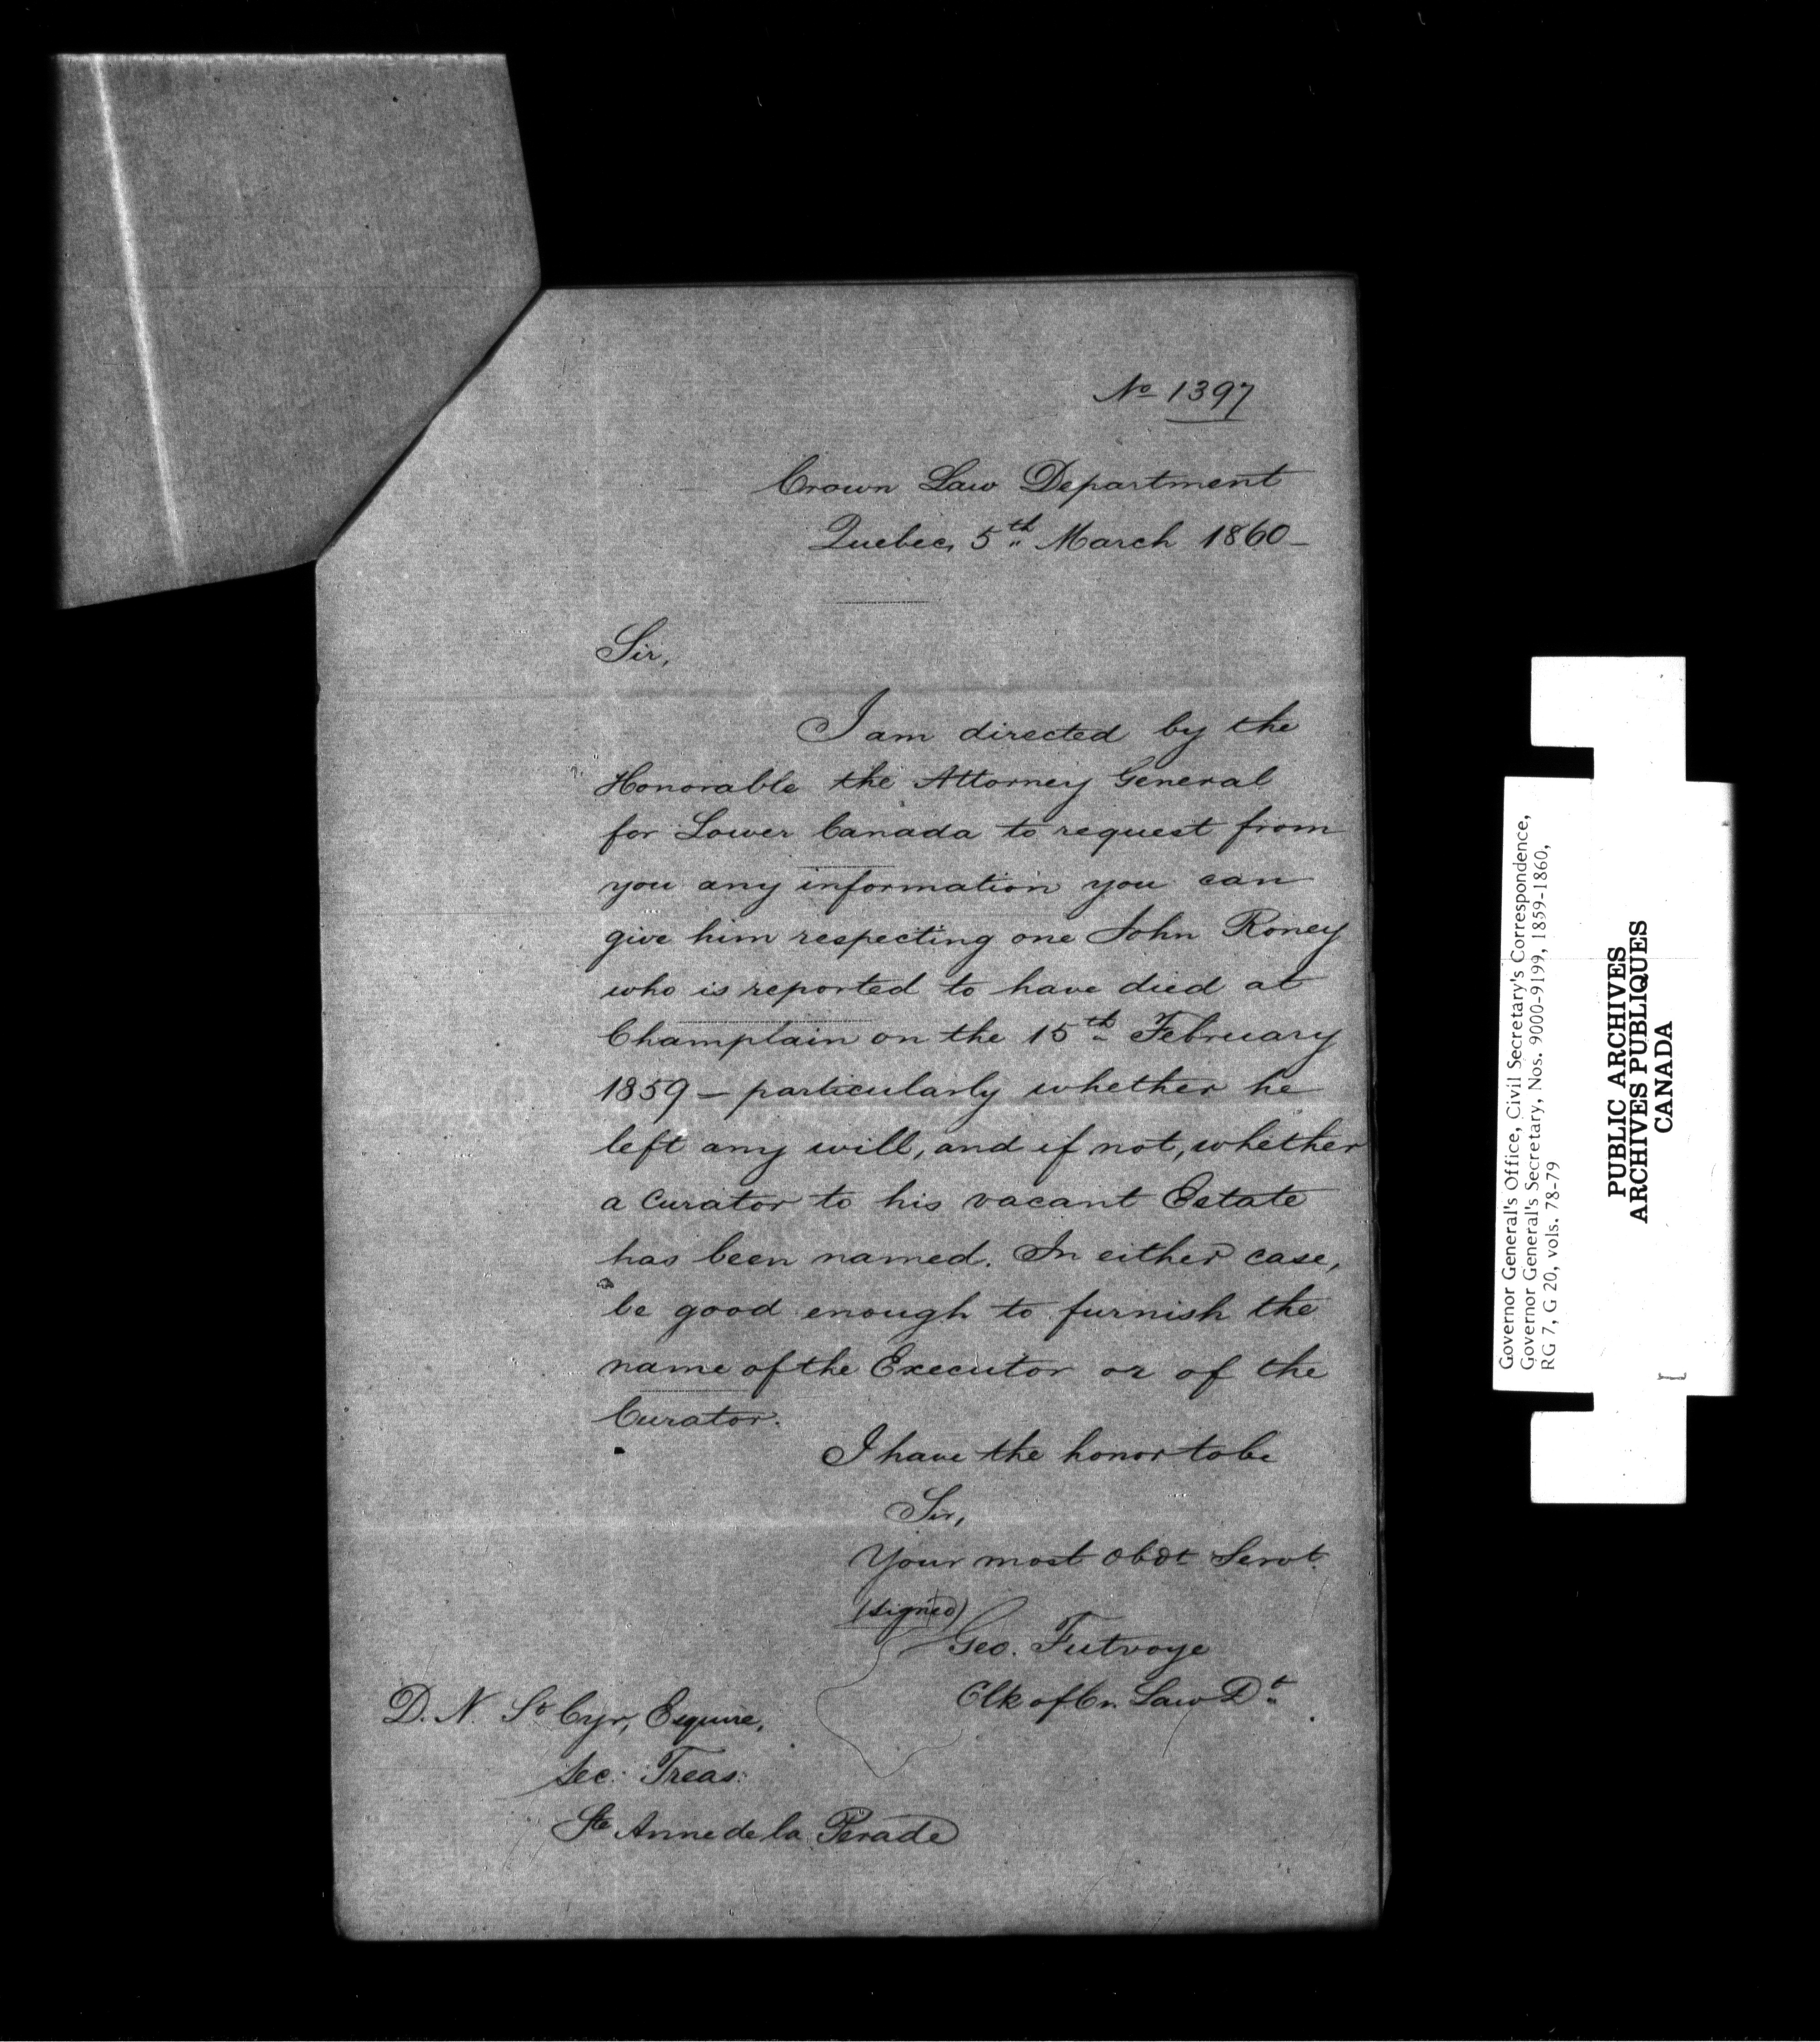 No 1397
Crown Law Department
Quebec, 5th March 1860 -
Sir,
I am directed by the
Honorable the Attorney General
for Lower Canada to request from
you any information you can
give him respecting one John Roney
who is reported to have died at
Champlain on the 15th February
1859 - particularly whether he
left any will, and if not, whether
a curator to his vacant Estate
has been named. In either case,
be good enough to furnish the
name of the Executor or of the
Curator.
I have the honor to be
Sir,
Your most obdt Servt.
(signed)
Geo. Futvoye
Clk of Cn. Law Dt.
D. N. St Cyr, Esquire,
Sec: Treas:
Ste Anne de la Perade
Governor General's Office, Civil Secretary's Correspondence,
Governor General's Secretary, Nos. 9000-9199, 1859-1860,
RG 7, G 20, vols. 78-79
PUBLIC ARCHIVES
ARCHIVES PUBLIQUES
CANADA